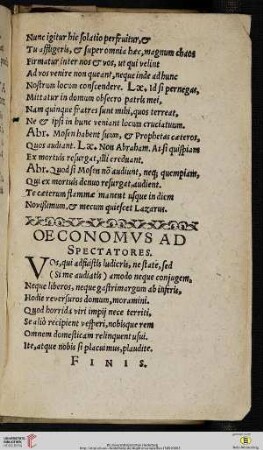 Nunc igitur hic solatio perfruitur, &
Tu affligeris, & super omnia hæc, magnum chaos
Firmatur inter nos & vos, ut qui velint
Ad vos venire non queant, neque inde adhuc
Nostrum locum conscendere. Læ. Id si pernegas,
Mittatur in domum obsecro patris mei,
Nam quinque fratres sunt mihi, quos terreat,
Ne & ipsi in hunc veniant locum cruciatuum.
Abr. Mosen habent suum, & Prophetas cæteros,
Quos audiant. Læ. Non Abraham. At si quispiam
Ex mortuis resurgat, illi creduant.
Abr. Quod si Mosen nō audiunt, neq; quempiam,
Qui ex mortuis denuo resurgat, audient.
Te cæterum flammæ manent usque in diem
Novissimum, & mecum quiescet Lazarus.
OECONOMVS AD
SPECTATORES.
VOs, qui adfuistis ludicris, ne state, sed
(Si me audiatis) amodo neque conjugem,
Neque liberos, neque gastrimargum ab inferis,
Hodie reversuros domum, moramini.
Quod horridi viri impij nece territi,
Se aliò recipient vesperi, nobisque rem
Omnem domesticam relinquent usui.
Ite, atque nobis si placuimus, plaudite.
FINIS.